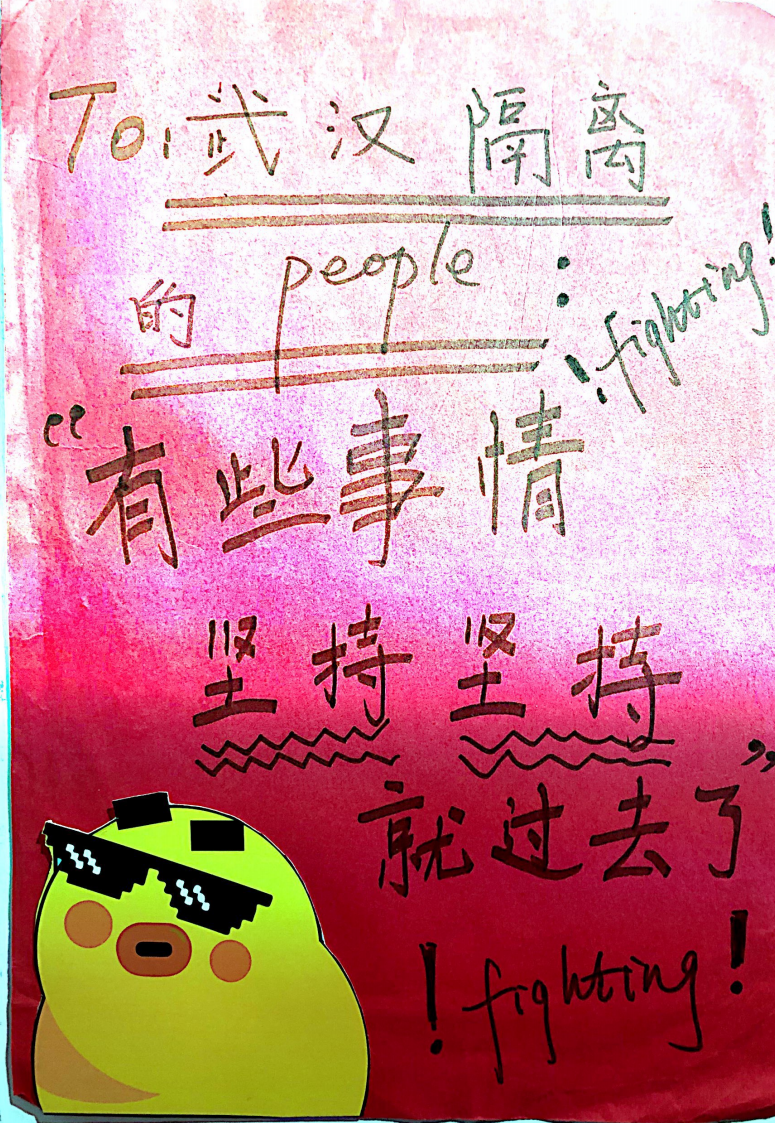 To:武汉隔离
的people:
!fighting!
“有些事情
坚持坚持
就过去了”
!fighting!